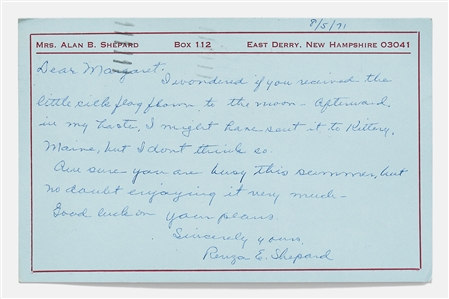 8/5/71
MRS. ALAN B. SHEPARD BOX 112 EAST DERRY, NEW HAMPSHIRE 03041
Dear Margaret:
I wondered if you received the
little silk flag flown to the moon - Afterward,
in my haste, I might have sent it to Kittery,
Maine, but I dont think so.
Am sure you are busy this summer, but
no doubt enjoying it very much -
Good luck on your plans.
Sincerely yours,
Renza E. Shepard